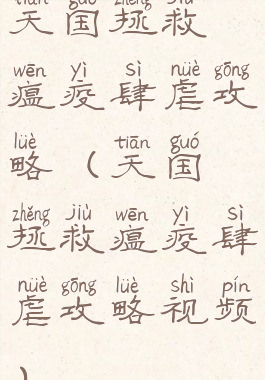 tiān guó zhěng jiù
天国拯救
wēn yì sì nüè gōng
瘟疫肆虐攻
lüè tiān guó
略（天国
zhěng jiù wēn yì sì
拯救瘟疫肆
nüè gōng lüè shì pín
虐攻略视频
）